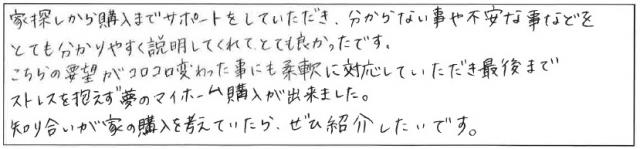 家探しから購入までサポートをしていただき、分からない事や不安な事などを
とても分かりやすく説明してくれてとても良かったです。
こちらの要望がコロコロ変わった事にも柔軟に対応していただき最後まで
ストレスを抱えず夢のマイホーム購入が出来ました。
知り合いが家の購入を考えていたら、ぜひ紹介したいです。